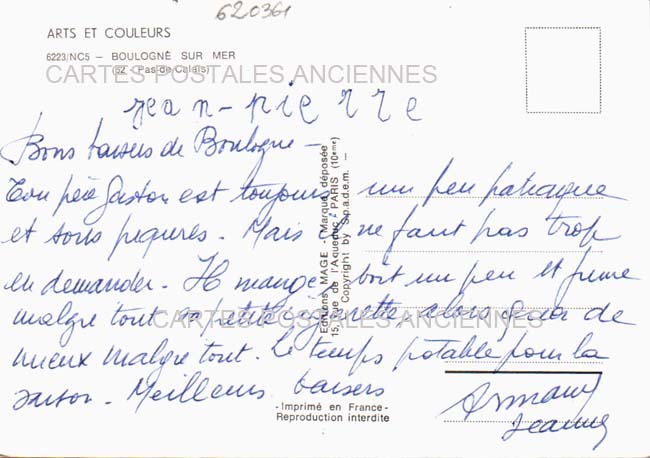 620361
ARTS ET COULEURS
6223/NC5 - BOULOGNE SUR MER
(62 - Pas-de-Calais)
CARTES POSTALES ANCIENNES
Jean-Pierre
Bons baisers de Boulogne -
Ton père Gaston est toujours un peu patraque
et sous piqures. Mais il ne faut pas trop
en demander. Il mange, boit un peu et fume
malgré tout sa petite alors de
CARTES POSTALES ANCIENNES
mieux malgré tout. Le temps potable pour la
saison. Meilleurs baisers
Armand
Jeanne
Editions MAGE - Marque déposée
15, Rue de l'Aqueduc - PARIS (10me)
Copyright by S.p.a.d.e.m. -
- Imprimé en France -
Reproduction interdite